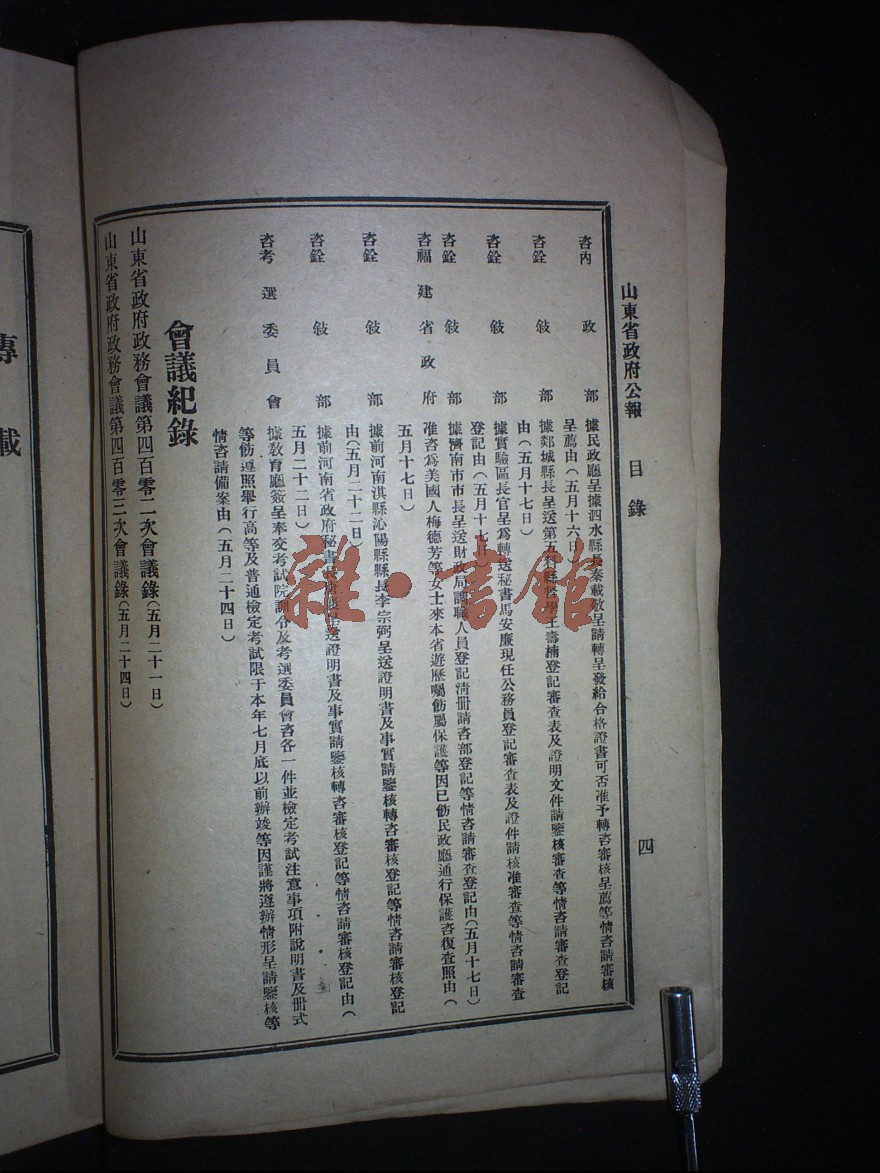 山東省政府公報 目錄 四
咨內政部 據民政廳呈據泗水縣長秦載敷呈請轉呈發給合格證書可否准予轉咨審核呈薦等情咨請審核
呈薦由(五月十六日)
咨銓敍部 據郯城縣長呈送第五科縣督學王壽楠登記審查表及證明文件請鑒核審查等情咨請審查登記
由(五月十七日)
咨銓敍部 據實驗區長官呈爲轉送秘書馬安廉現任公務員登記審查表及證件請核准審查等情咨請審查
登記由(五月十七日)
咨銓敍部 據濟南市市長呈送財政局 職人員登記清冊請咨部登記等情咨請審查登記由(五月十七日)
咨福建省政府 准咨爲美國人梅德芳等女士來本省遊歷囑飭屬保護等因已飭民政廳通行保護咨復查照由(
五月十七日)
咨銓敍部 據前河南淇縣沁陽縣縣長李宗弼呈送證明書及事實請鑒核轉咨審核登記等情咨請審核登記
由(五月二十二日)
咨銓敍部 據前河南省政府秘書長 呈送證明書及事實請鑒核轉咨審核登記等情咨請審核登記由(
五月二十二日)
咨考選委員會 據教育廳簽呈奉交考試院訓令及考選委員會咨各一件並檢定考試注意事項附說明書及冊式
等飭遵照舉行高等及普通檢定考試限于本年七月底以前辦竣等因謹將遵辦情形呈請鑒核等
情咨請備案由(五月二十四日)
會議紀錄
山東省政府政務會議第四百零二次會議錄(五月二十一日)
山東省政府政務會議第四百零三次會議錄(五月二十四日)
專載
雜·書館